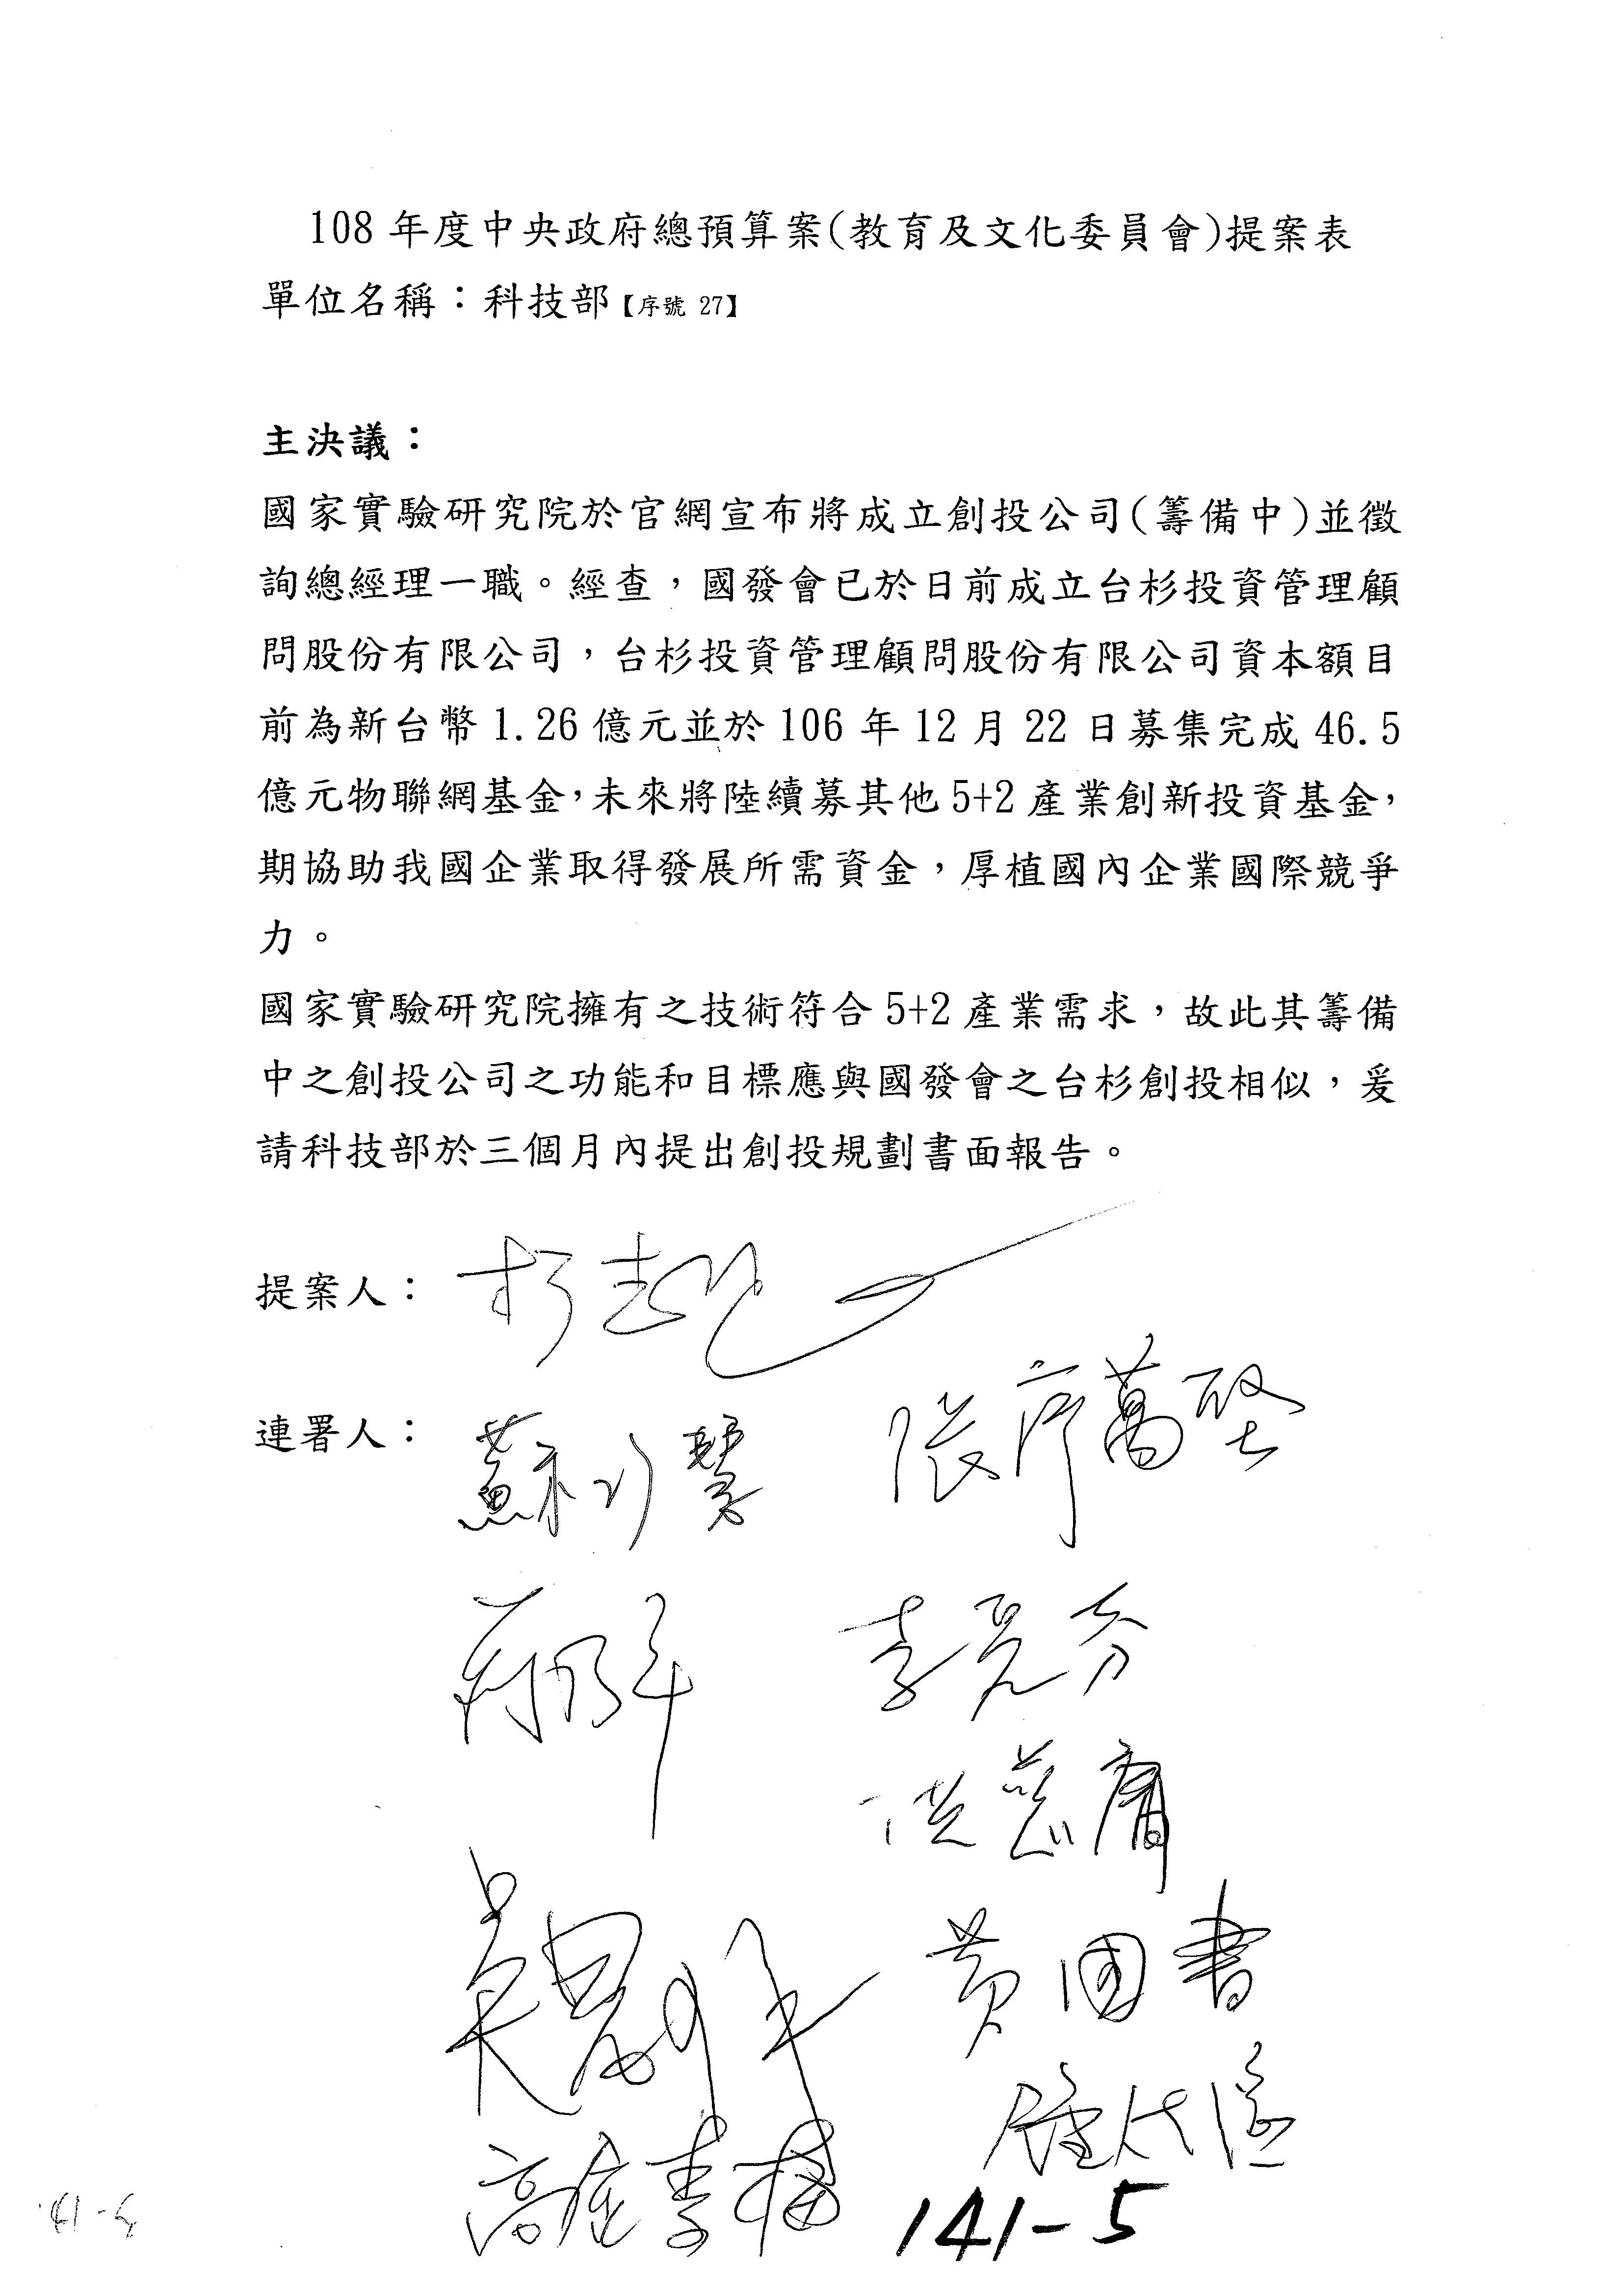 108 年度中央政府總預算案(教育及文化委員會)提案表
單位名稱：科技部【序號 27】
主決議：
國家實驗研究院於官網宣布將成立創投公司(籌備中)並徵
詢總經理一職。經查，國發會已於日前成立台杉投資管理顧
問股份有限公司，台杉投資管理顧問股份有限公司資本額目
前為新台幣 1.26 億元並於 106 年 12 月 22 日募集完成 46.5
億元物聯網基金，未來將陸續募其他 5+2 產業創新投資基金，
期協助我國企業取得發展所需資金，厚植國內企業國際競爭
力。
國家實驗研究院擁有之技術符合 5+2 產業需求，故此其籌備
中之創投公司之功能和目標應與國發會之台杉創投相似，爰
請科技部於三個月內提出創投規劃書面報告。
提案人：
連署人：
蘇巧慧 張廖萬堅
李麗芬
洪慈庸
吳思瑤 黃國書
鍾佳濱
高潞以用
141-5